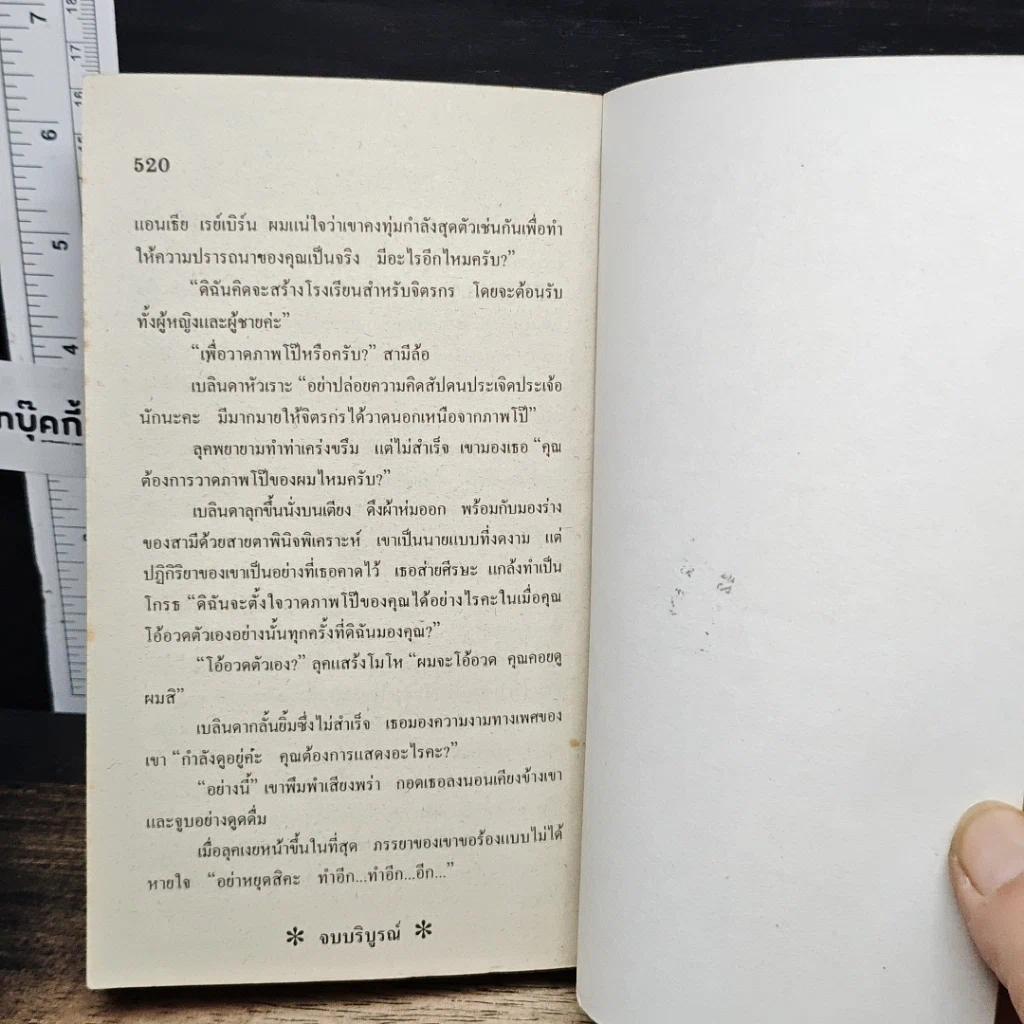 7
17
16
6
5
4
กบุ๊คกี้
520
แอนเธีย เรย์เบิร์น ผมแน่ใจว่าเขาคงทุ่มกำลังสุดตัวเช่นกันเพื่อทำ
ให้ความปรารถนาของคุณเป็นจริง มีอะไรอีกไหมครับ?”
“ดิฉันคิดจะสร้างโรงเรียนสำหรับจิตรกร โดยจะต้อนรับ
ทั้งผู้หญิงและผู้ชายค่ะ”
“เพื่อวาดภาพโป๊หรือครับ?” สามีล้อ
เบลินดาหัวเราะ “อย่าปล่อยความคิดสัปดนประเจิดประเจ้อ
นักนะคะ มีมากมายให้จิตรกรได้วาดนอกเหนือจากภาพโป๊”
ลุคพยายามทำท่าเคร่งขรึม แต่ไม่สำเร็จ เขามองเธอ “คุณ
ต้องการวาดภาพโป๊ของผมไหมครับ?”
เบลินดาลุกขึ้นนั่งบนเตียง ดึงผ้าห่มออก พร้อมกับมองร่าง
ของสามีด้วยสายตาพินิจพิเคราะห์ เขาเป็นนายแบบที่งดงาม แต่
ปฏิกิริยาของเขาเป็นอย่างที่เธอคาดไว้ เธอส่ายศีรษะ แกล้งทำเป็น
โกรธ “ดิฉันจะตั้งใจวาดภาพโป๊ของคุณได้อย่างไรคะในเมื่อคุณ
โอ้อวดตัวเองอย่างนั้นทุกครั้งที่ดิฉันมองคุณ?”
“โอ้อวดตัวเอง?” ลุคแสร้งโมโห “ผมจะโอ้อวด คุณคอยดู
ผมสิ”
เบลินดากลั้นยิ้มซึ่งไม่สำเร็จ เธอมองความงามทางเพศของ
เขา “กำลังดูอยู่ค๊ะ คุณต้องการแสดงอะไรคะ?”
“อย่างนี้” เขาพึมพำเสียงพร่า กอดเธอลงนอนเคียงข้างเขา
และจูบอย่างดูดดื่ม
เมื่อลุคเงยหน้าขึ้นในที่สุด ภรรยาของเขาขอร้องแบบไม่ได้
หายใจ “อย่าหยุดสิคะ ทำอีก...ทำอีก...อีก...”
* จบบริบูรณ์ *